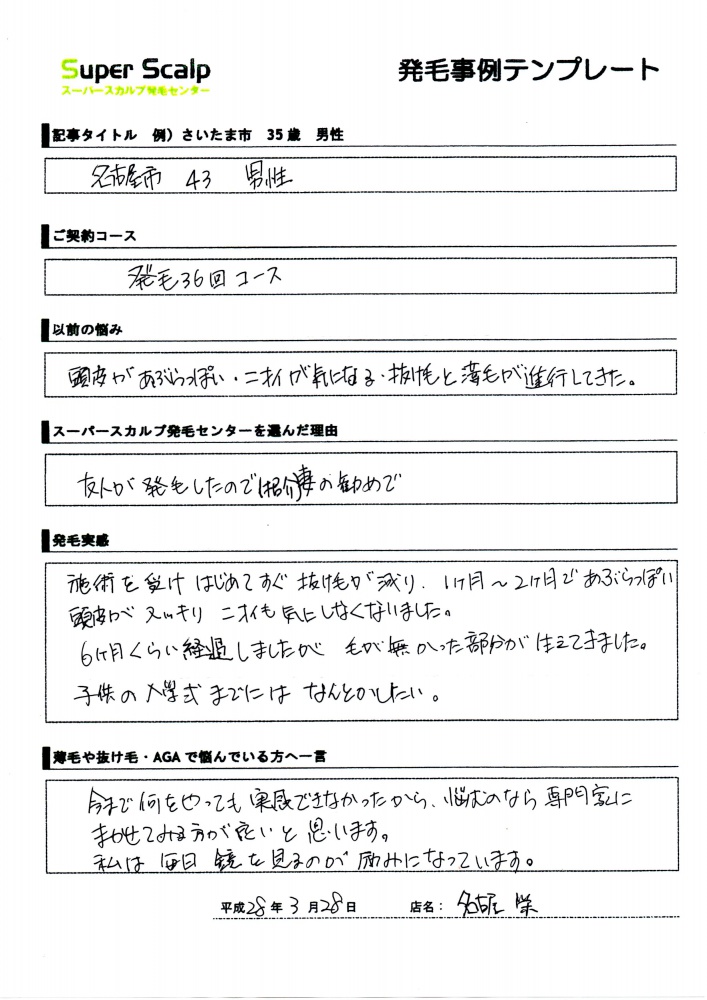 Super Scalp
スーパースカルプ発毛センター
発毛事例テンプレート
記事タイトル 例）さいたま市 35歳 男性
名古屋市 43 男性
ご契約コース
発毛36回コース
以前の悩み
頭皮があぶらっぽい・ニオイが気になる・抜け毛と薄毛が進行してきた。
スーパースカルプ発毛センターを選んだ理由
友人が発毛したので紹介妻の勧めで
発毛実感
施術を受けはじめてすぐ抜け毛が減り、1ヶ月～2ヶ月であぶらっぽい
頭皮がスッキリ ニオイも気にしなくないました。
6ヶ月くらい経過しましたが 毛が無かった部分が生えてきました。
子供の入学式までにはなんとかしたい。
薄毛や抜け毛・AGAで悩んでいる方へ一言
今まで何をやっても実感できなかったから、悩むのなら専門家に
まかせてみる方が良いと思います。
私は毎日鏡を見るのが励みになっています。
平成28年3月28日 店名： 名古屋 栄